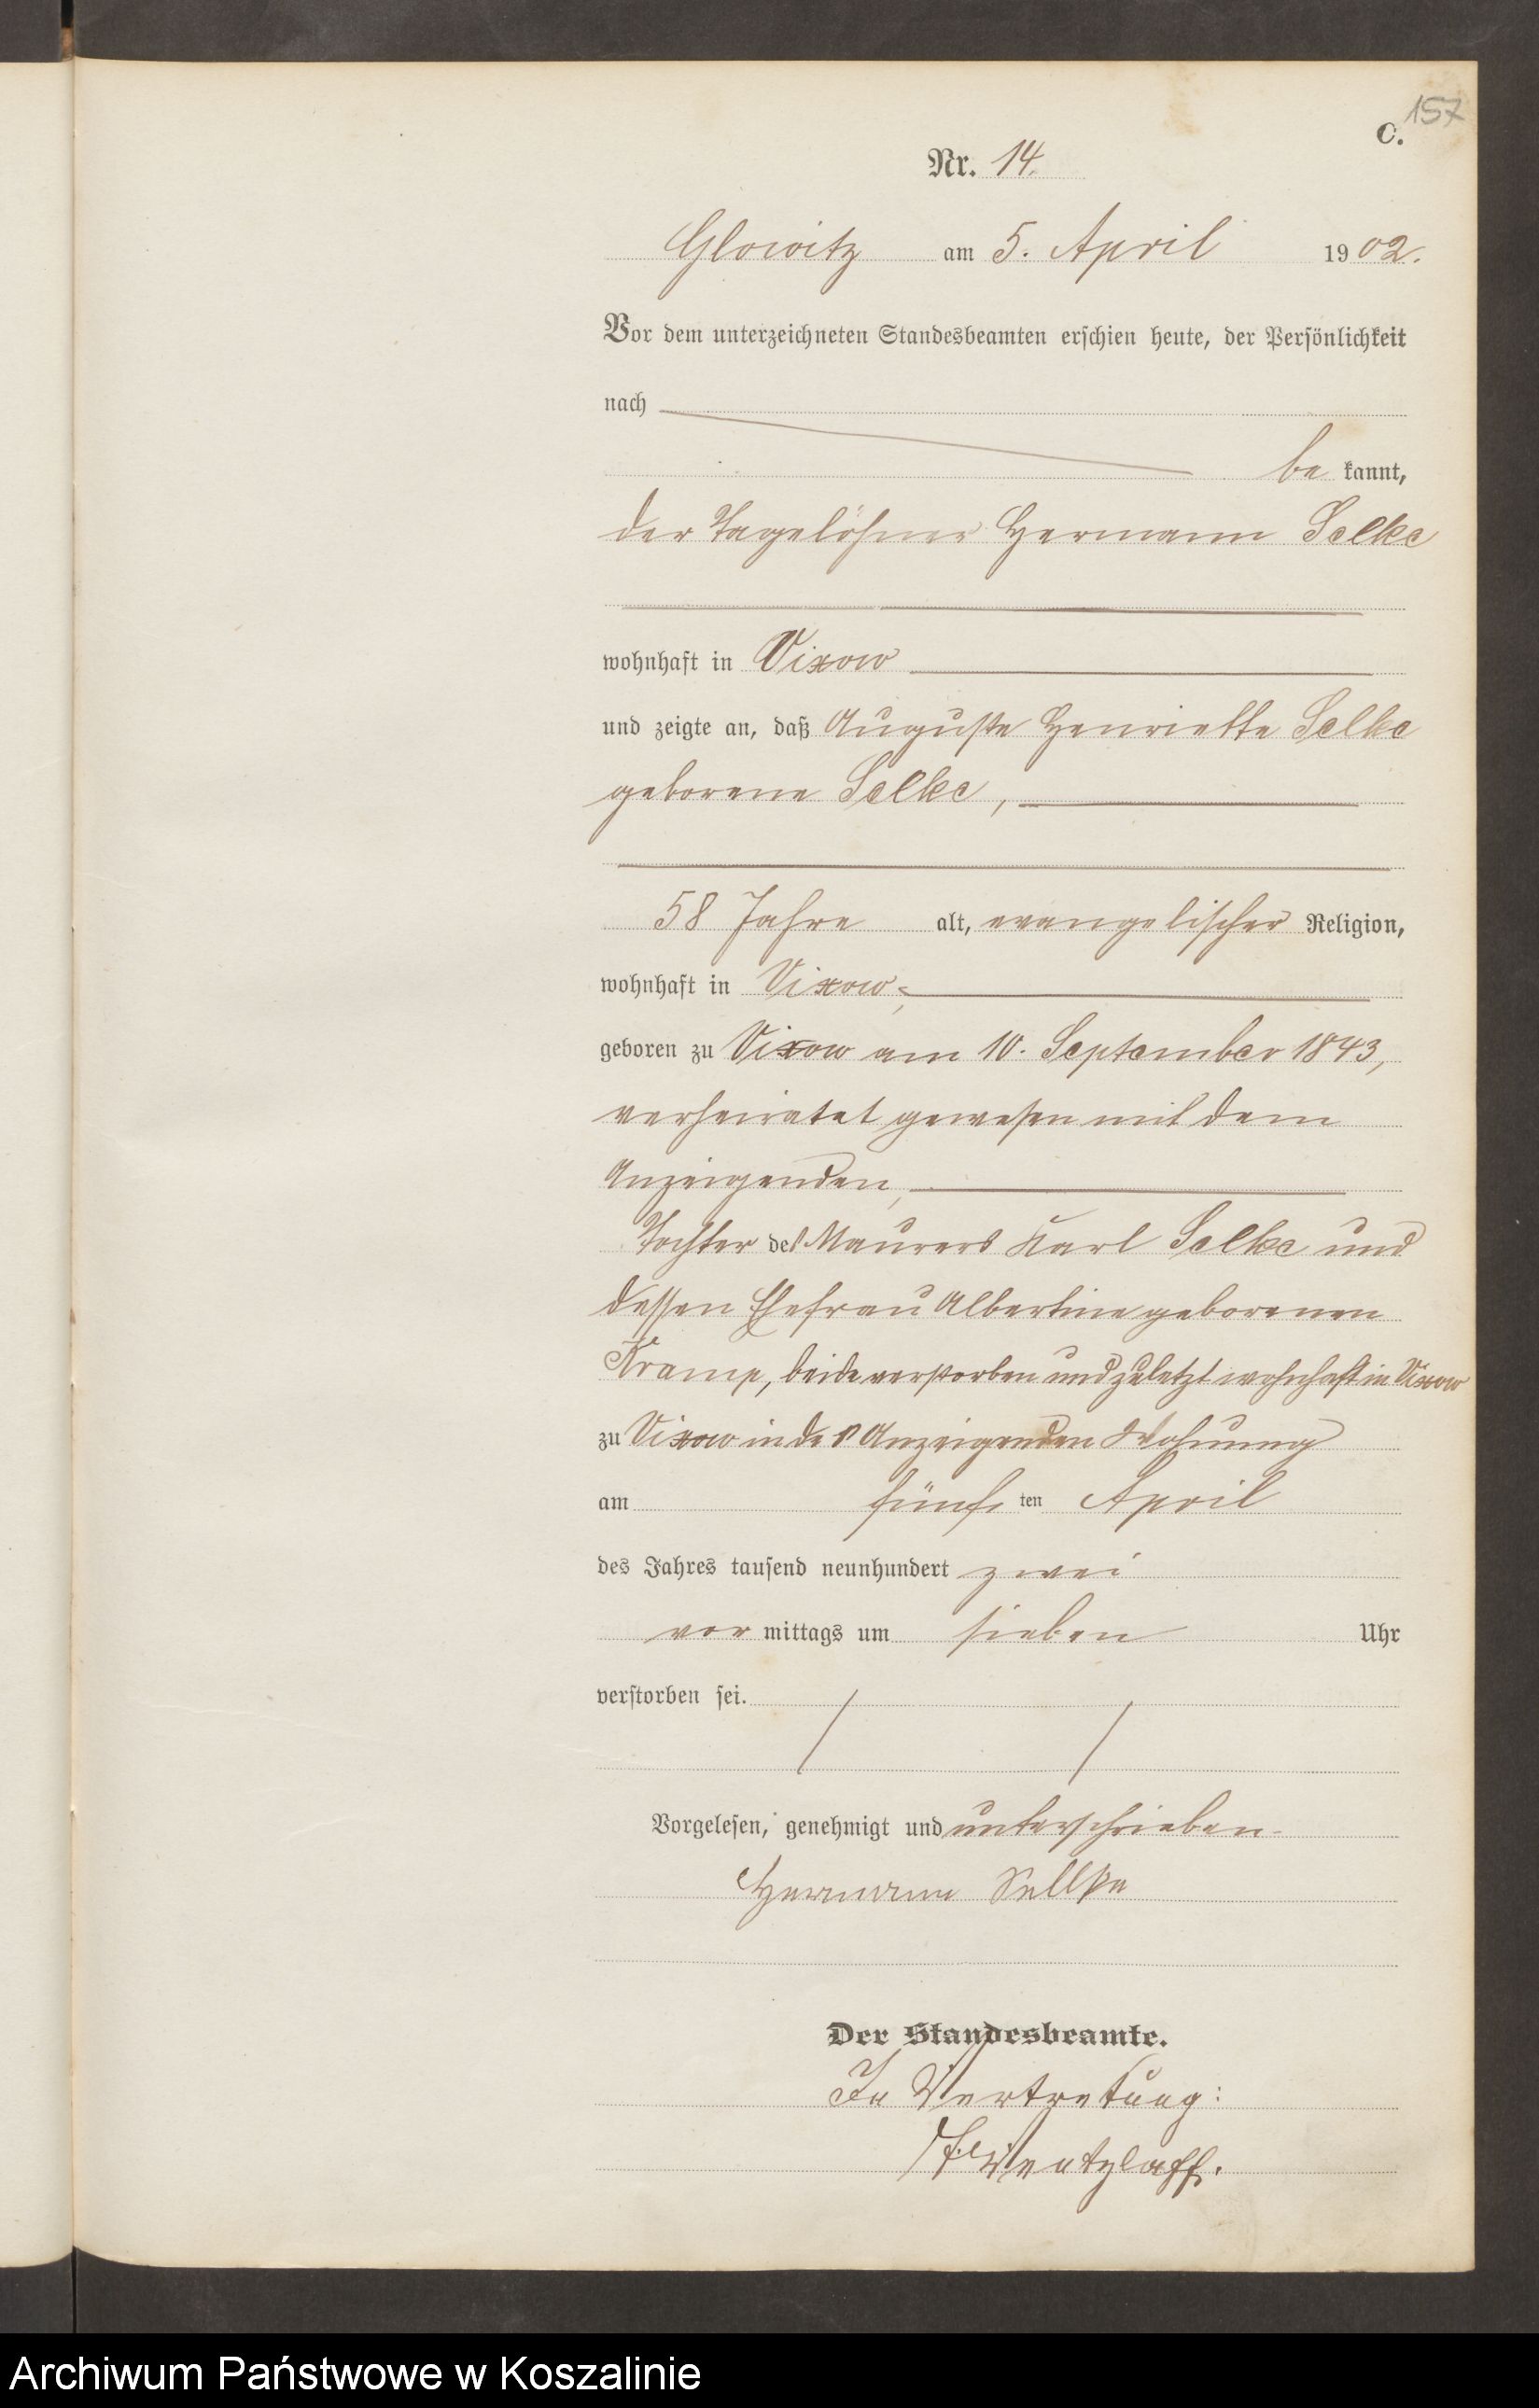 157
C.
Nr. 14.
Glowitz am 5. April 1902.
Vor dem unterzeichneten Standesbeamten erschien heute, der Persönlichkeit
nach
be kannt,
der Tagelöhner Hermann Selke
wohnhaft in Vixow
und zeigte an, daß Auguste Henriette Selke
geborene Selke,
58 Jahre alt, evangelischer Religion,
wohnhaft in Vixow,
geboren zu Vixow am 10. September 1843,
verheiratet gewesen mit dem
Anzeigenden,
Tochter des Maurers Karl Selke und
dessen Ehefrau Albertine geborenen
Kramp, beide verstorben und zuletzt wohnhaft in Vixow
zu Vixow in des Anzeigenden Wohnung
am fünften April
des Jahres tausend neunhundert zwei
vor mittags um sieben Uhr
verstorben sei.
Vorgelesen, genehmigt und unterschrieben
Hermann Sellke
Der Standesbeamte.
In Vertretung:
Wentzlaff.
Archiwum Państwowe w Koszalinie